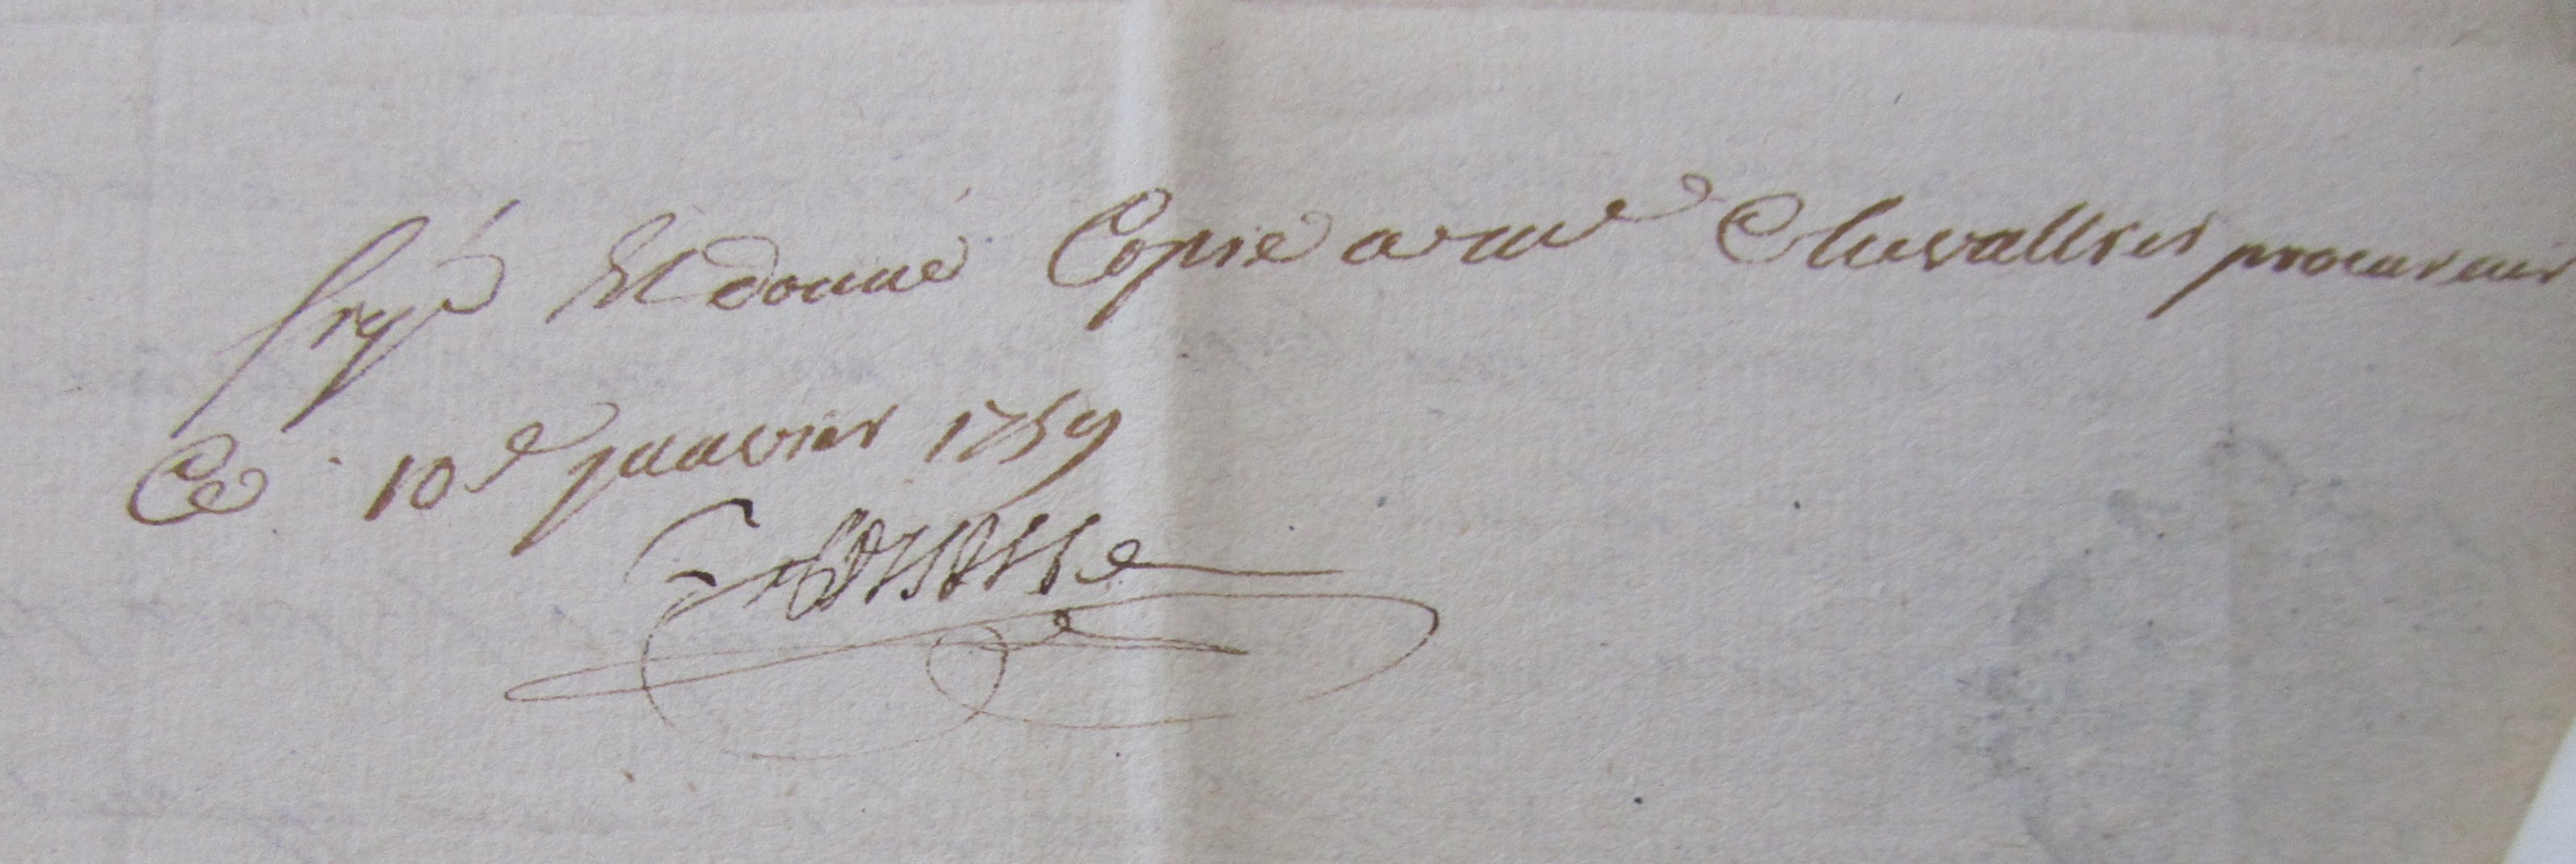 sig.é Et donné Copie a me Chevallier procureur
Ce 10e janvier 1759